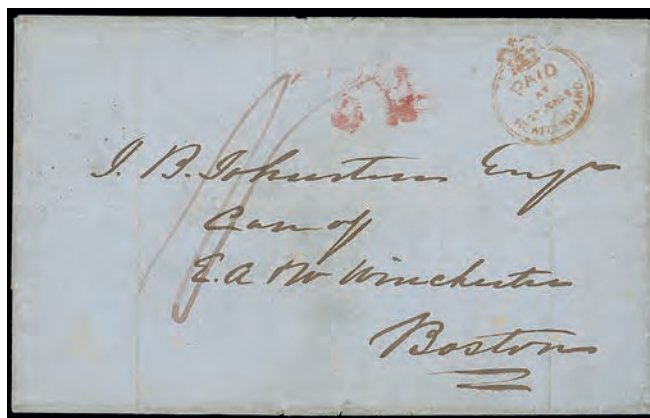 PAID
AT
ST. JOHN'S
NEWFOUNDLAND
J. B. Johnston Esqr
Care of
E. A & W Winchester
Boston